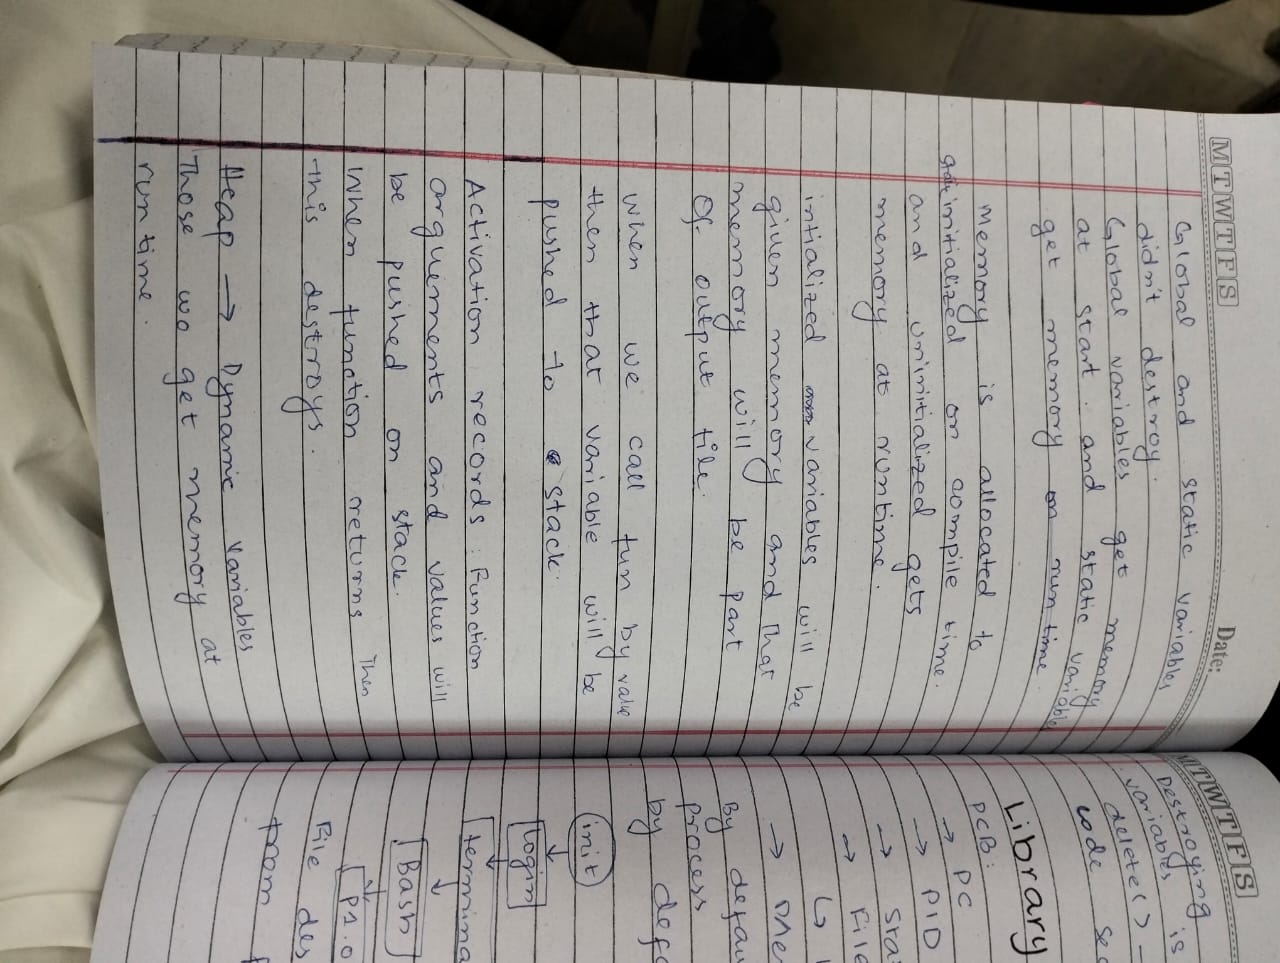 MTWTFS
Date:
Global and static variables
didn't destroy.
Global variables get memory
at start. and static variable
get memory on run time.
Memory is allocated to
initialized on compile time.
and uninitialized gets
memory at runtime.
intialized variables will be
given memory and That
memory will be part
Of output file.
When we call fun by value
then that variable will be
pushed to stack.
Activation records: Function
arguements and values will
be pushed on stack.
When function returns Then
this destroys.
Heap → Dynamic variables
Those wo get memory at
run time.
MTWTFS
Destroying
variables is
delete()
code
Library
PCB:
→ PC
→ PID
→
→ File
↳
→
By
process
by
init
↓
login
↓
↓
Bash
↓
File
from